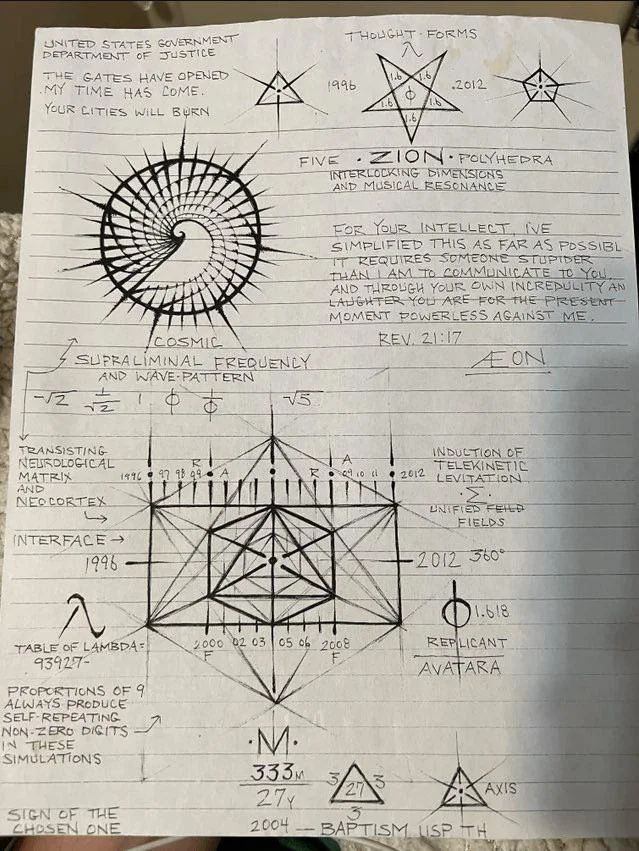 UNITED STATES GOVERNMENT
DEPARTMENT OF JUSTICE
THE GATES HAVE OPENED
MY TIME HAS COME.
YOUR CITIES WILL BURN
THOUGHT-FORMS
λ
1996
1.6 1.6
1.6 ϕ 1.6
1.6
.2012
FIVE · ZION · POLYHEDRA
INTERLOCKING DIMENSIONS
AND MUSICAL RESONANCE
FOR YOUR INTELLECT, I'VE
SIMPLIFIED THIS AS FAR AS POSSIBL
IT REQUIRES SOMEONE STUPIDER
THAN I AM TO COMMUNICATE TO YOU,
AND THROUGH YOUR OWN INCREDULITY AN
LAUGHTER YOU ARE FOR THE PRESENT
MOMENT POWERLESS AGAINST ME.
REV. 21:17
ÆON
COSMIC
SUPRALIMINAL FREQUENCY
AND WAVE-PATTERN
-√2 1/√2 1 ϕ 1/ϕ √5
TRANSISTING
NEUROLOGICAL
MATRIX
AND
NEOCORTEX
INTERFACE →
R A R A
1996 97 98 99 09 10 11 2012
INDUCTION OF
TELEKINETIC
LEVITATION
·Σ·
UNIFIED FEILD
FIELDS
1996
2012 360°
λ
TABLE OF LAMBDA=
93927-
2000 02 03 05 06 2008
F F
ϕ 1.618
REPLICANT
AVATARA
PROPORTIONS OF 9
ALWAYS PRODUCE
SELF-REPEATING
NON-ZERO DIGITS
IN THESE
SIMULATIONS
·M·
333M
27Y
3 27 3
3
AXIS
SIGN OF THE
CHOSEN ONE
2004 — BAPTISM USP TH